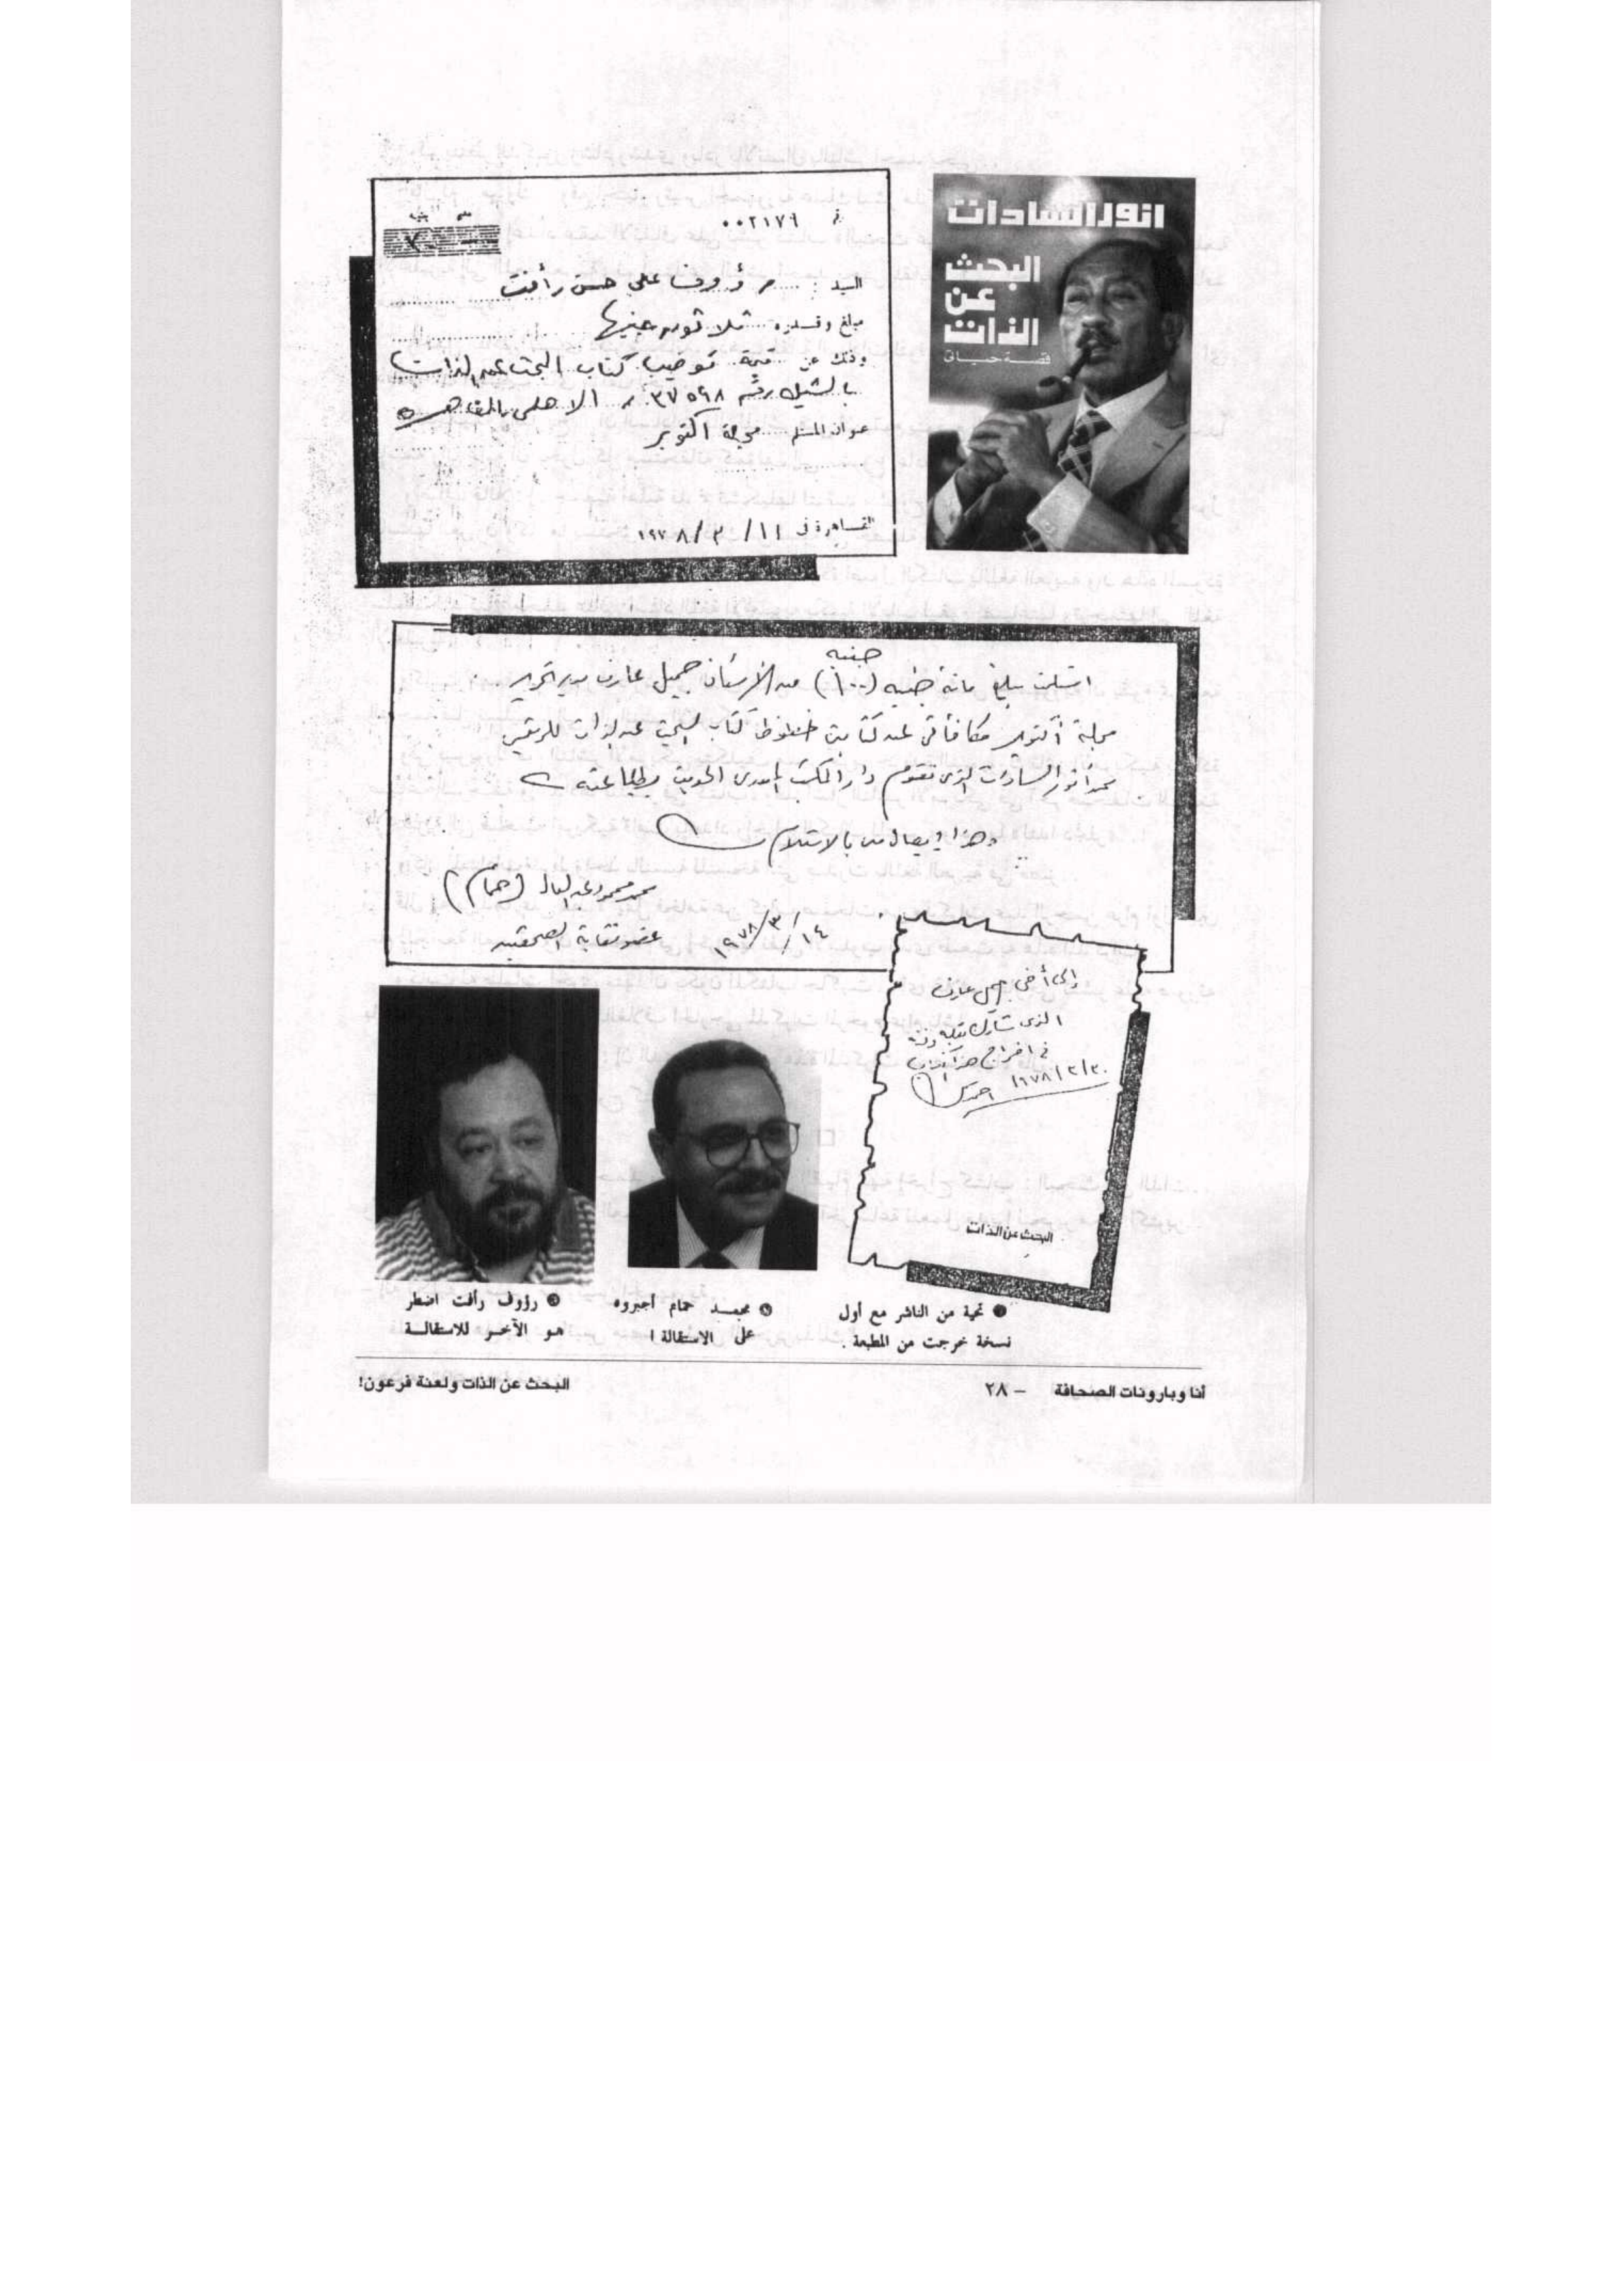 انور السادات
البحث
عن
الذات
قصة حياتى
٠٠٢١٧٩
السيد : رؤوف على حسن رأفت
مبلغ وقدره ثلاثون جنيها
وذلك عن قيمة توضيب كتاب البحث عن الذات
بالشيك رقم ٣٧٥٩٨ الاهلى بالقاهرة
عنوان المستلم مجلة اكتوبر
القاهرة فى ١١ / ٣ / ١٩٧٨
استلمت مبلغ مائة جنيه (١٠٠) جنيه من الأستاذ جميل عارف مدير تحرير
مجلة أكتوبر مكافأتى عن كتابتى خطوط كتاب البحث عن الذات للرئيس
محمد أنور السادات الذى تقوم دار المكتب المصرى الحديث بطباعته
وهذا إيصال منى بالاستلام
محمد محمود عبد العال (حمام)
عضو نقابة الصحفيين
١٤ / ٣ / ١٩٧٨
إلى أخى جميل عارف
الذى شارك بقلبه وفنه
فى اخراج هذا الكتاب
١٩٧٨
البحث عن الذات
● تحية من الناشر مع أول
نسخة خرجت من المطبعة .
● محمد حمام أجبروه
على الاستقالة !
● رؤوف رأفت اضطر
هو الآخر للاستقالة
أنا وبارونات الصحافة – ٢٨
البحث عن الذات ولعنة فرعون!